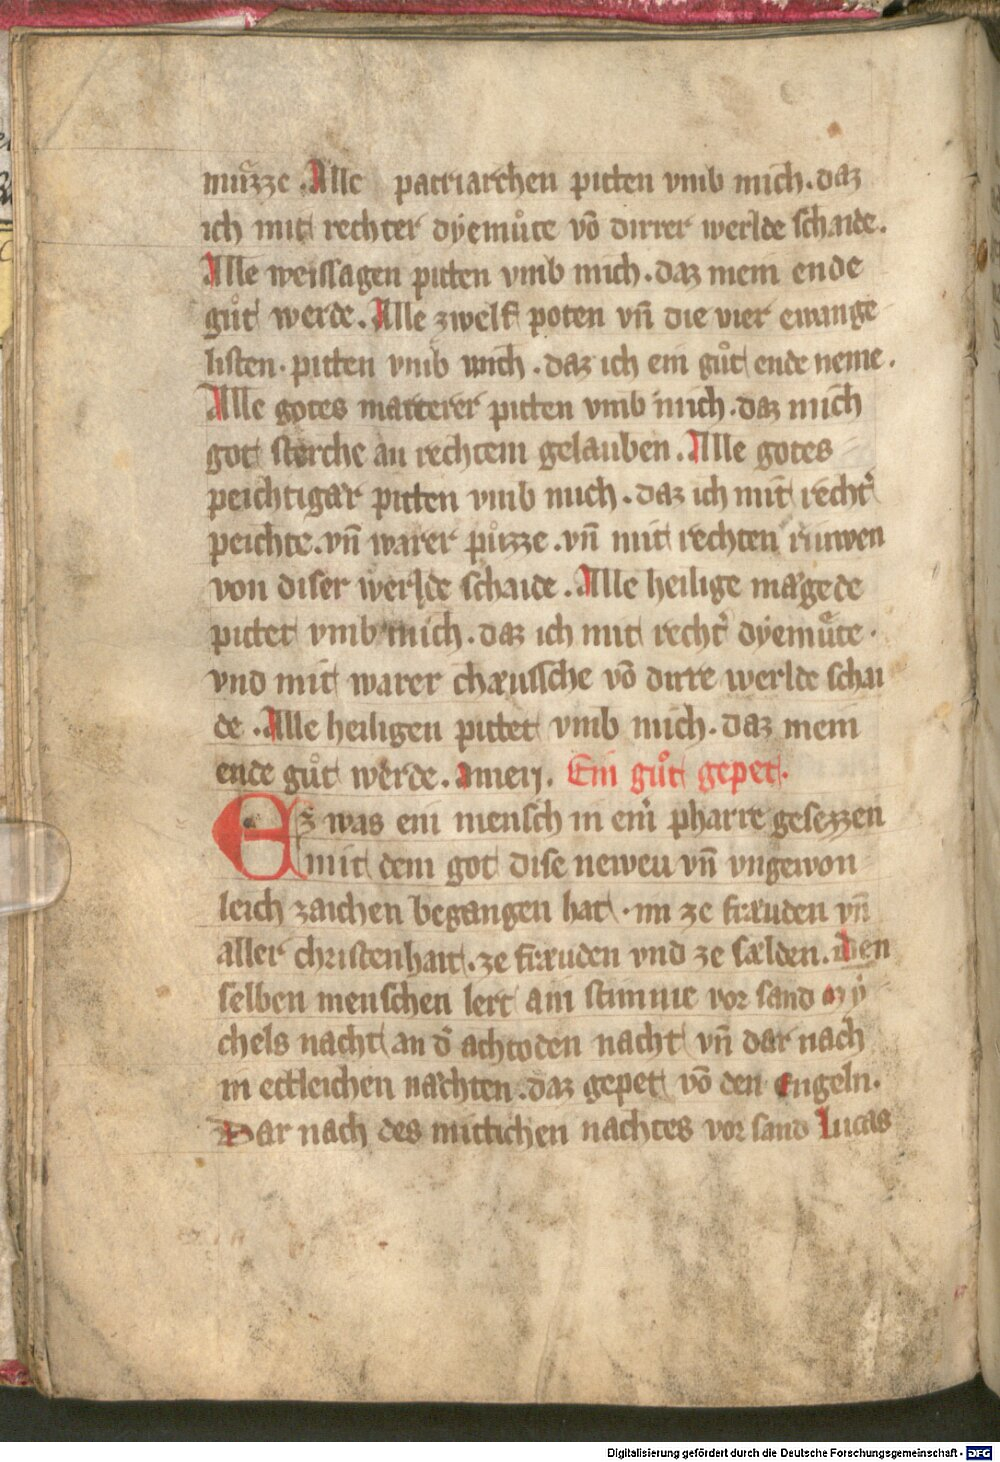 muͤzze . Alle patriarchen pitten vmb mich . daz
ich mit rechter dyemuͤte võ dirrer werlde schaide .
Alle weissagen pitten vmb mich . daz mein ende
guͦt werde . Alle zwelf poten vñ die vier ewange
listen . pitten vmb mich . daz ich ein guͦt ende neme .
Alle gotes marterer pitten vmb mich . daz mich
got sterche an rechtem gelauben . Alle gotes
peichtigaͤr pitten vmb mich . daz ich mit recht᾽
peichte . vñ warer puͦzze . vñ mit rechten riuwen
von diser werlde schaide . Alle heilige maͤgede
pittet vmb mich . daz ich mit recht᾽ dyemuͤte .
vnd mit warer chæussche võ dirre werlde schai
de . Alle heiligen pittet vmb mich . daz mein
ende guͦt werde . Amen . Ein guͦt gepet .
Ez was ein mensch in ein᾽ pharre gesezzen
mit dem got dise newen vñ vngewon
leich zaichen begangen hat . im ze fræuden vñ
aller christenhait . ze fræuden vnd ze sælden . Den
selben menschen lert ain stimme vor sand My
chels nacht an d᾽ achtoden nacht vñ dar nach
in etleichen naͤchten . daz gepet võ den engeln .
Dar nach des mittichen nachtes vor sand Lucas
Digitalisierung gefördert durch die Deutsche Forschungsgemeinschaft - DFG